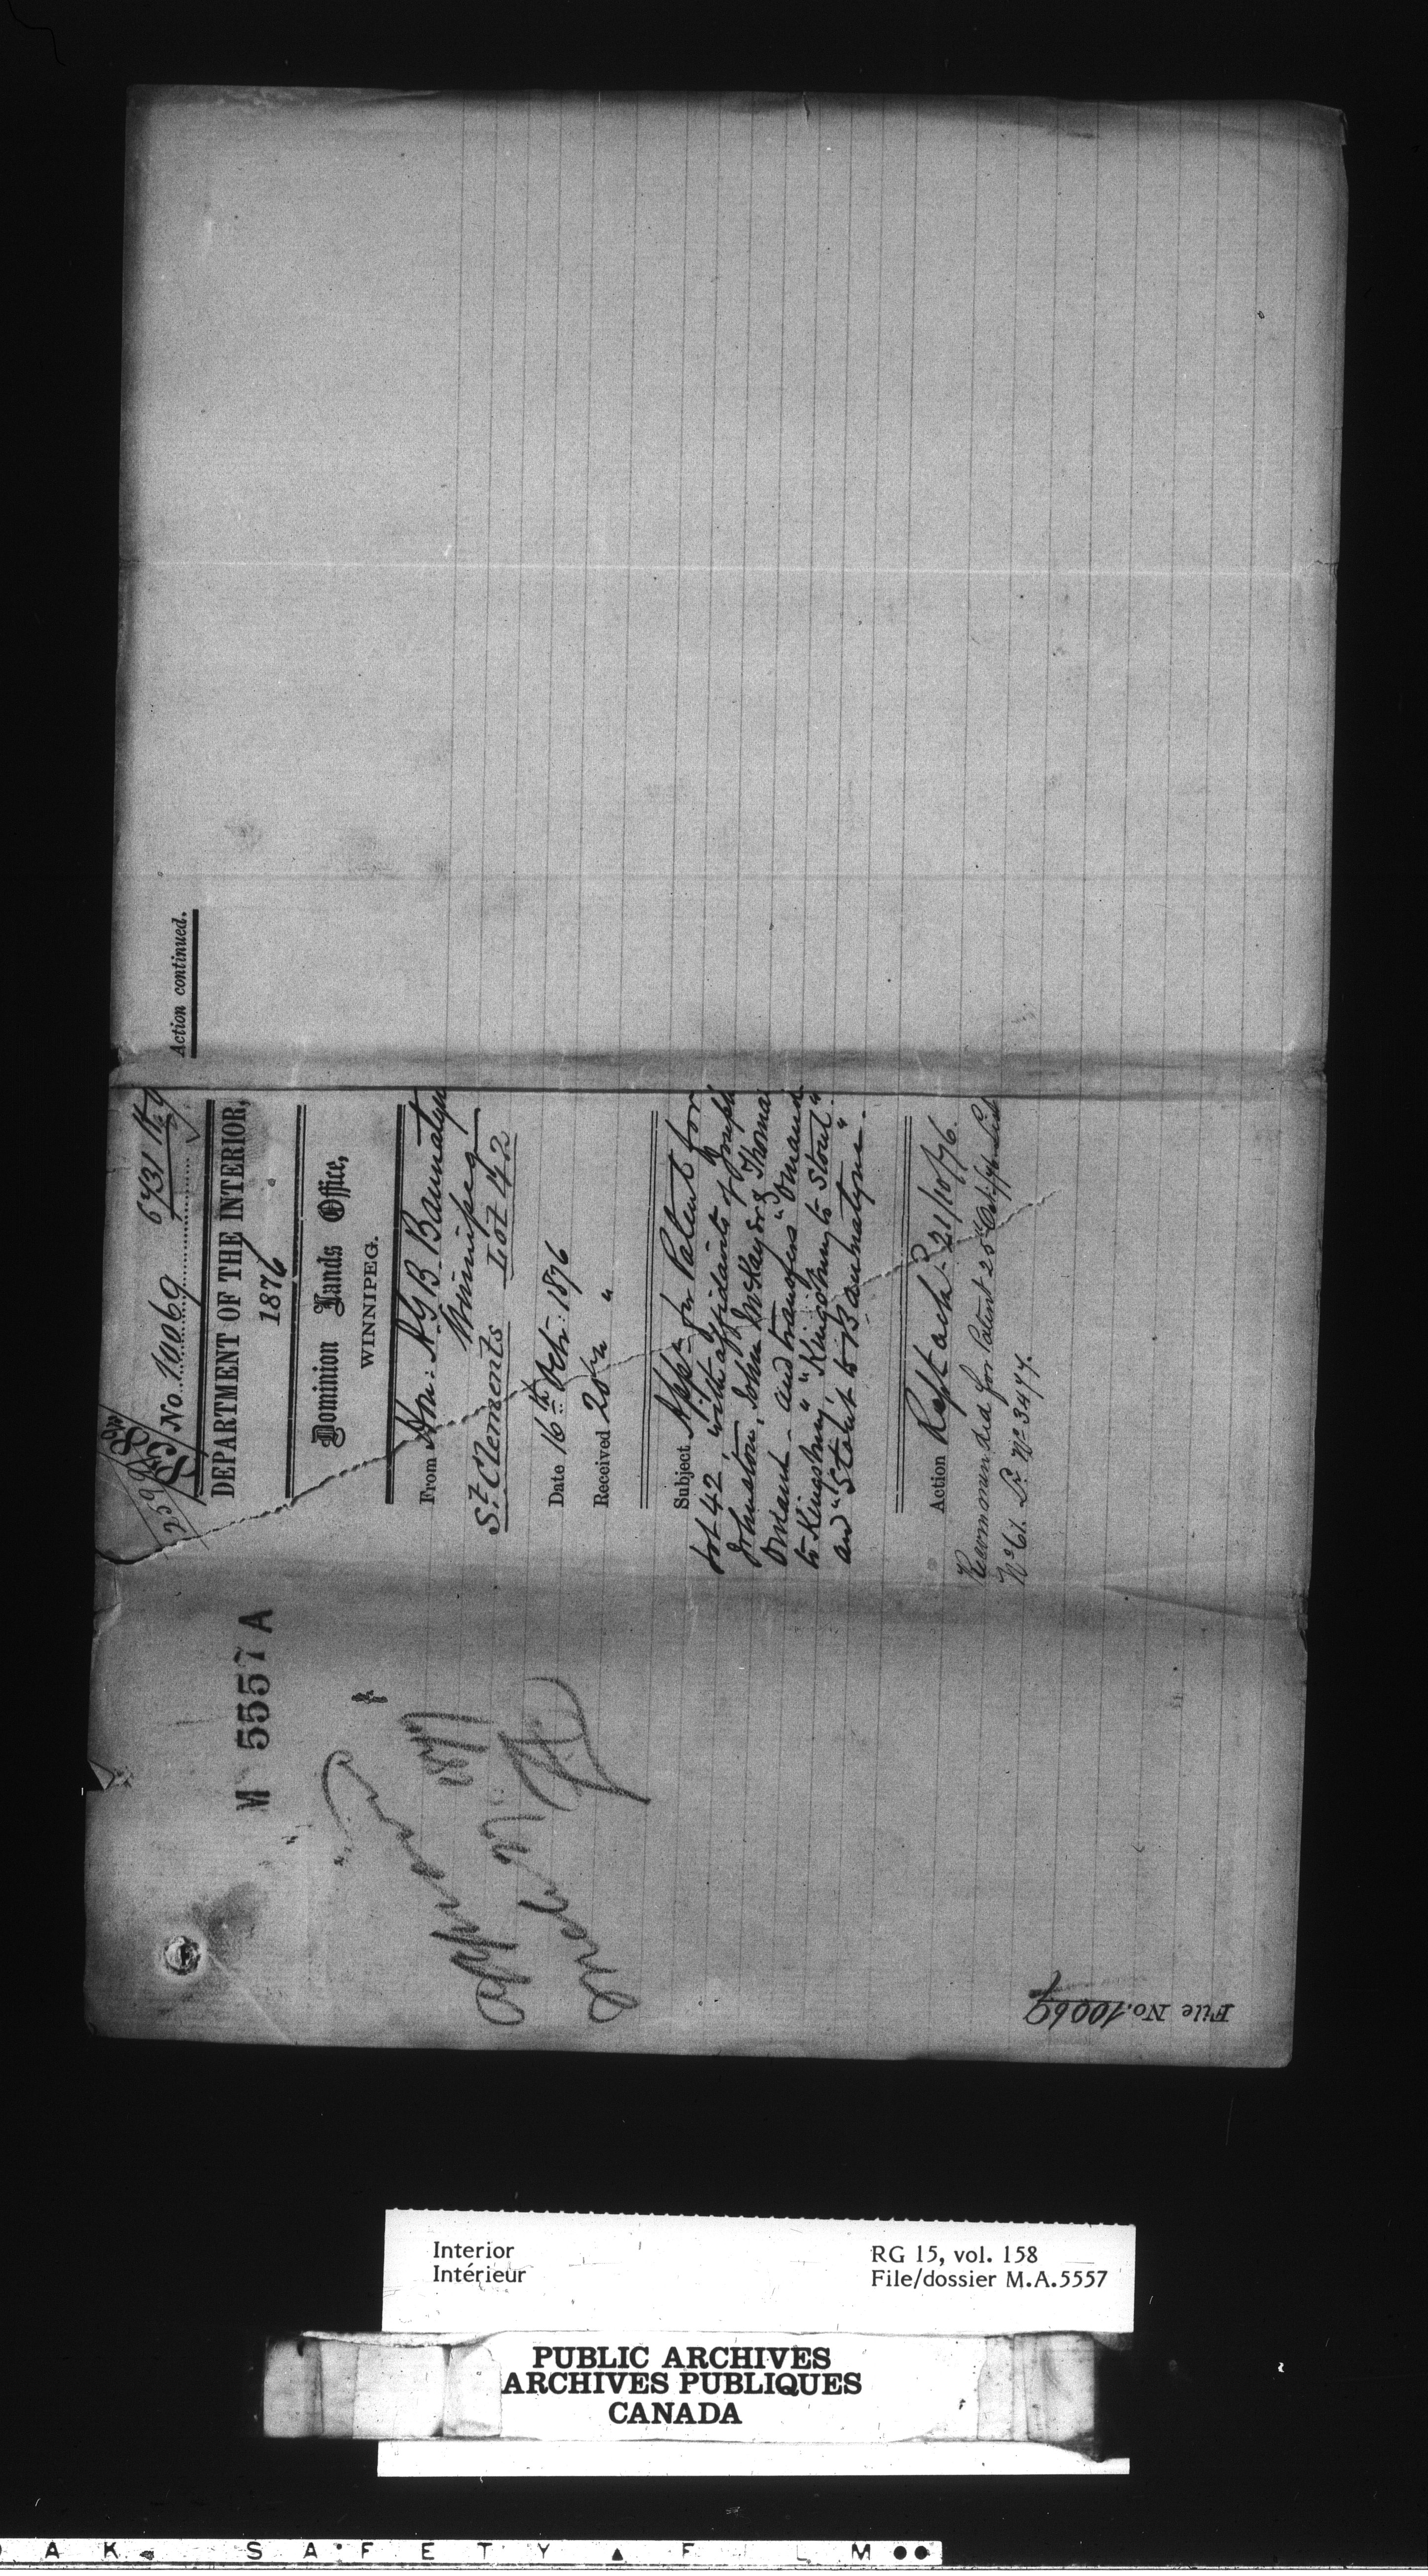 Action continued.
No. 10069
DEPARTMENT OF THE INTERIOR,
1876
Dominion Lands Office,
WINNIPEG.
From Hon: A. G. B. Bannatyne
Winnipeg
St. Clements Lot 42
Date 16th Octr: 1876
Received 20th "
Subject Appn for Patent for
Lot 42, with affidavits of Joseph
Johnston, John McKay Sr & Thomas
Omand - and transfers "Omand
to Kingsbury" "Kingsbury to Stout"
and "Stout to Bannatyne". -
Action Rept & ack. 21/10/76.
Recommended for Patent 25th Oct/76
No 61. Lr. No 3477.
M 5557 A
approved
1877
File No. 10069
Interior
Intérieur
RG 15, vol. 158
File/dossier M.A.5557
PUBLIC ARCHIVES
ARCHIVES PUBLIQUES
CANADA
A K S A F E T Y ▲ F L M ●●